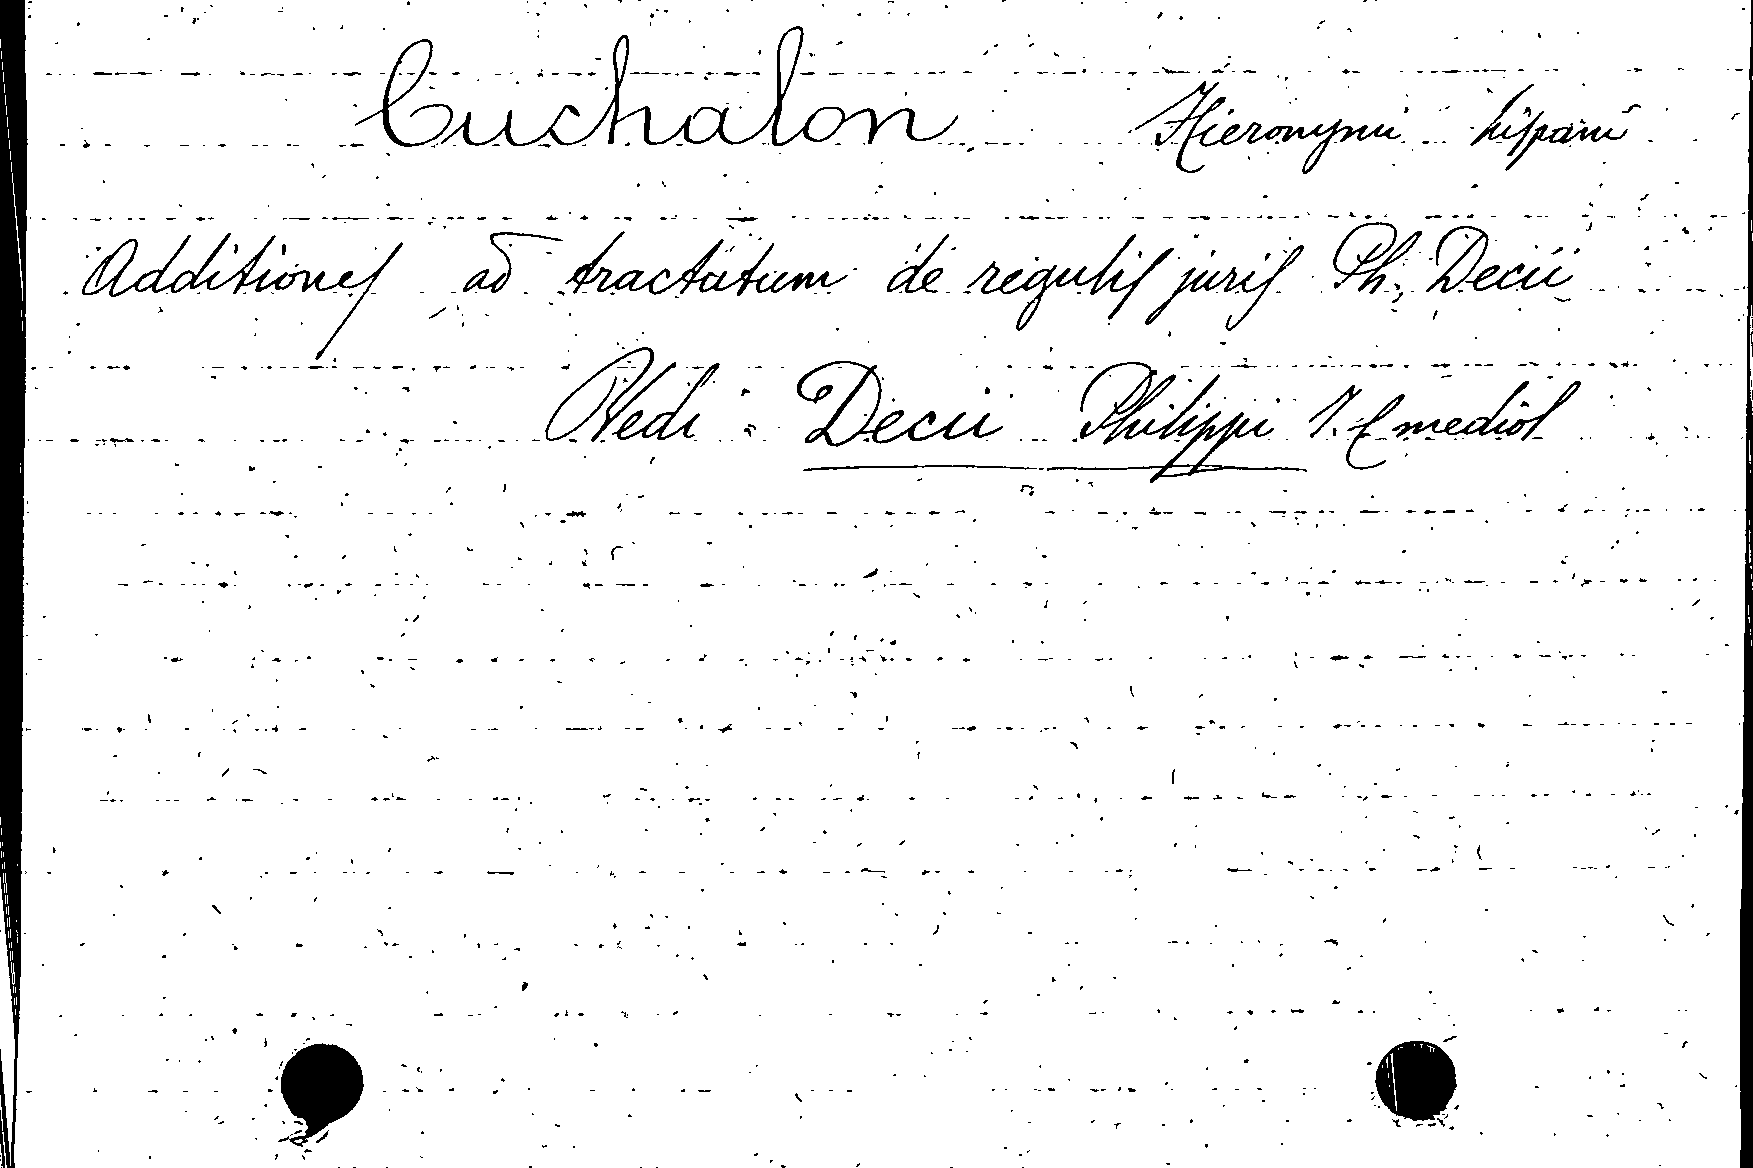 Cuchalon Hieronymi hispani
Additiones ad tractatum de regulis juris Ph. Decii
Vedi: Decii Philippi I. C mediol